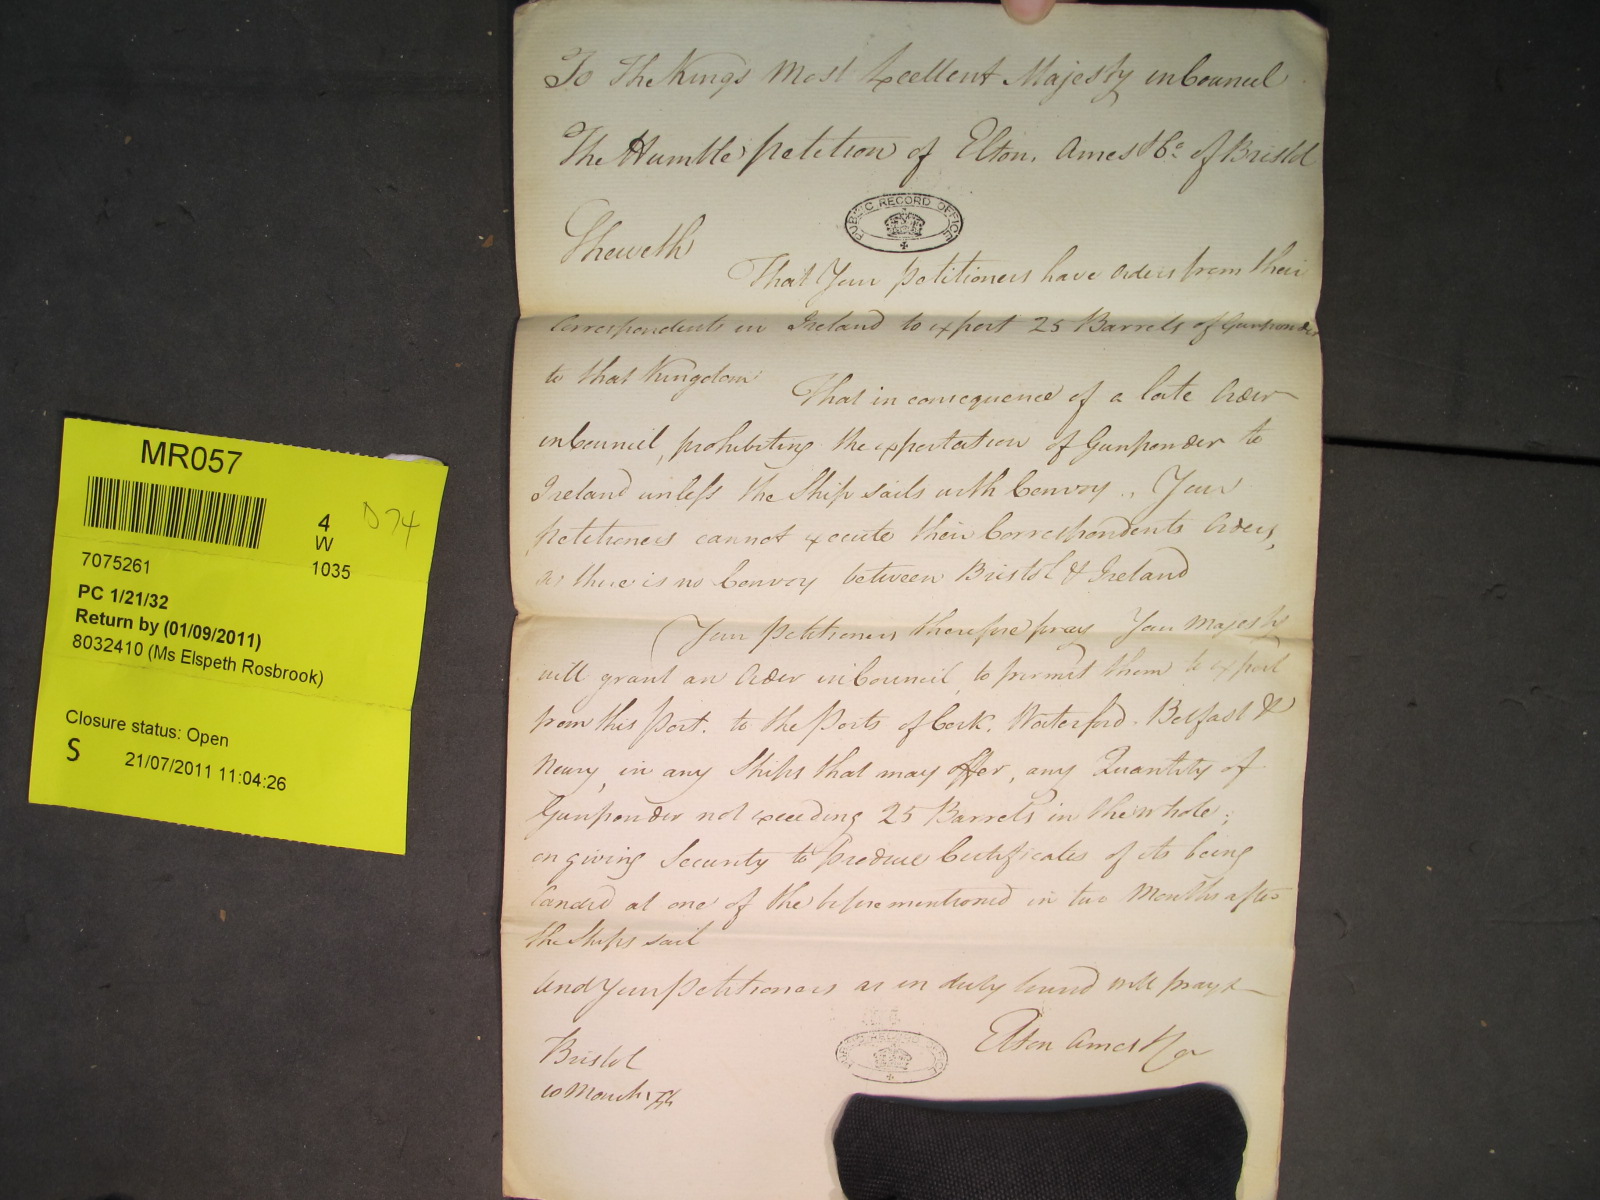 To The Kings Most Excellent Majesty in Council
The Humble petition of Elton, Ames & Co. of Bristol
PUBLIC RECORD OFFICE
Sheweth
That Your petitioners have orders from their
Correspondents in Ireland to export 25 Barrels of Gunpowder
to that Kingdom That in consequence of a late Order
in Council, prohibiting the exportation of Gunpowder to
Ireland unless the Ship sails with Convoy .. Your
petitioners cannot execute their Correspondents Orders,
as there is no Convoy between Bristol & Ireland
Your petitioners therefore pray Your Majesty
will grant an Order in Council, to permit them to export
from this port. to the Ports of Cork. Waterford. Belfast &
Newry, in any Ships that may offer, any Quantity of
Gunpowder not exceeding 25 Barrels in the whole;
on giving Security to produce Certificates of its being
landed at one of the before mentioned in two Months after
the Ships sail
And Your petitioners as in duty bound will pray &
Elton Ames & Co
Bristol
10 March
PUBLIC RECORD OFFICE
MR057
4
W
1035
D74
7075261
PC 1/21/32
Return by (01/09/2011)
8032410 (Ms Elspeth Rosbrook)
Closure status: Open
S
21/07/2011 11:04:26